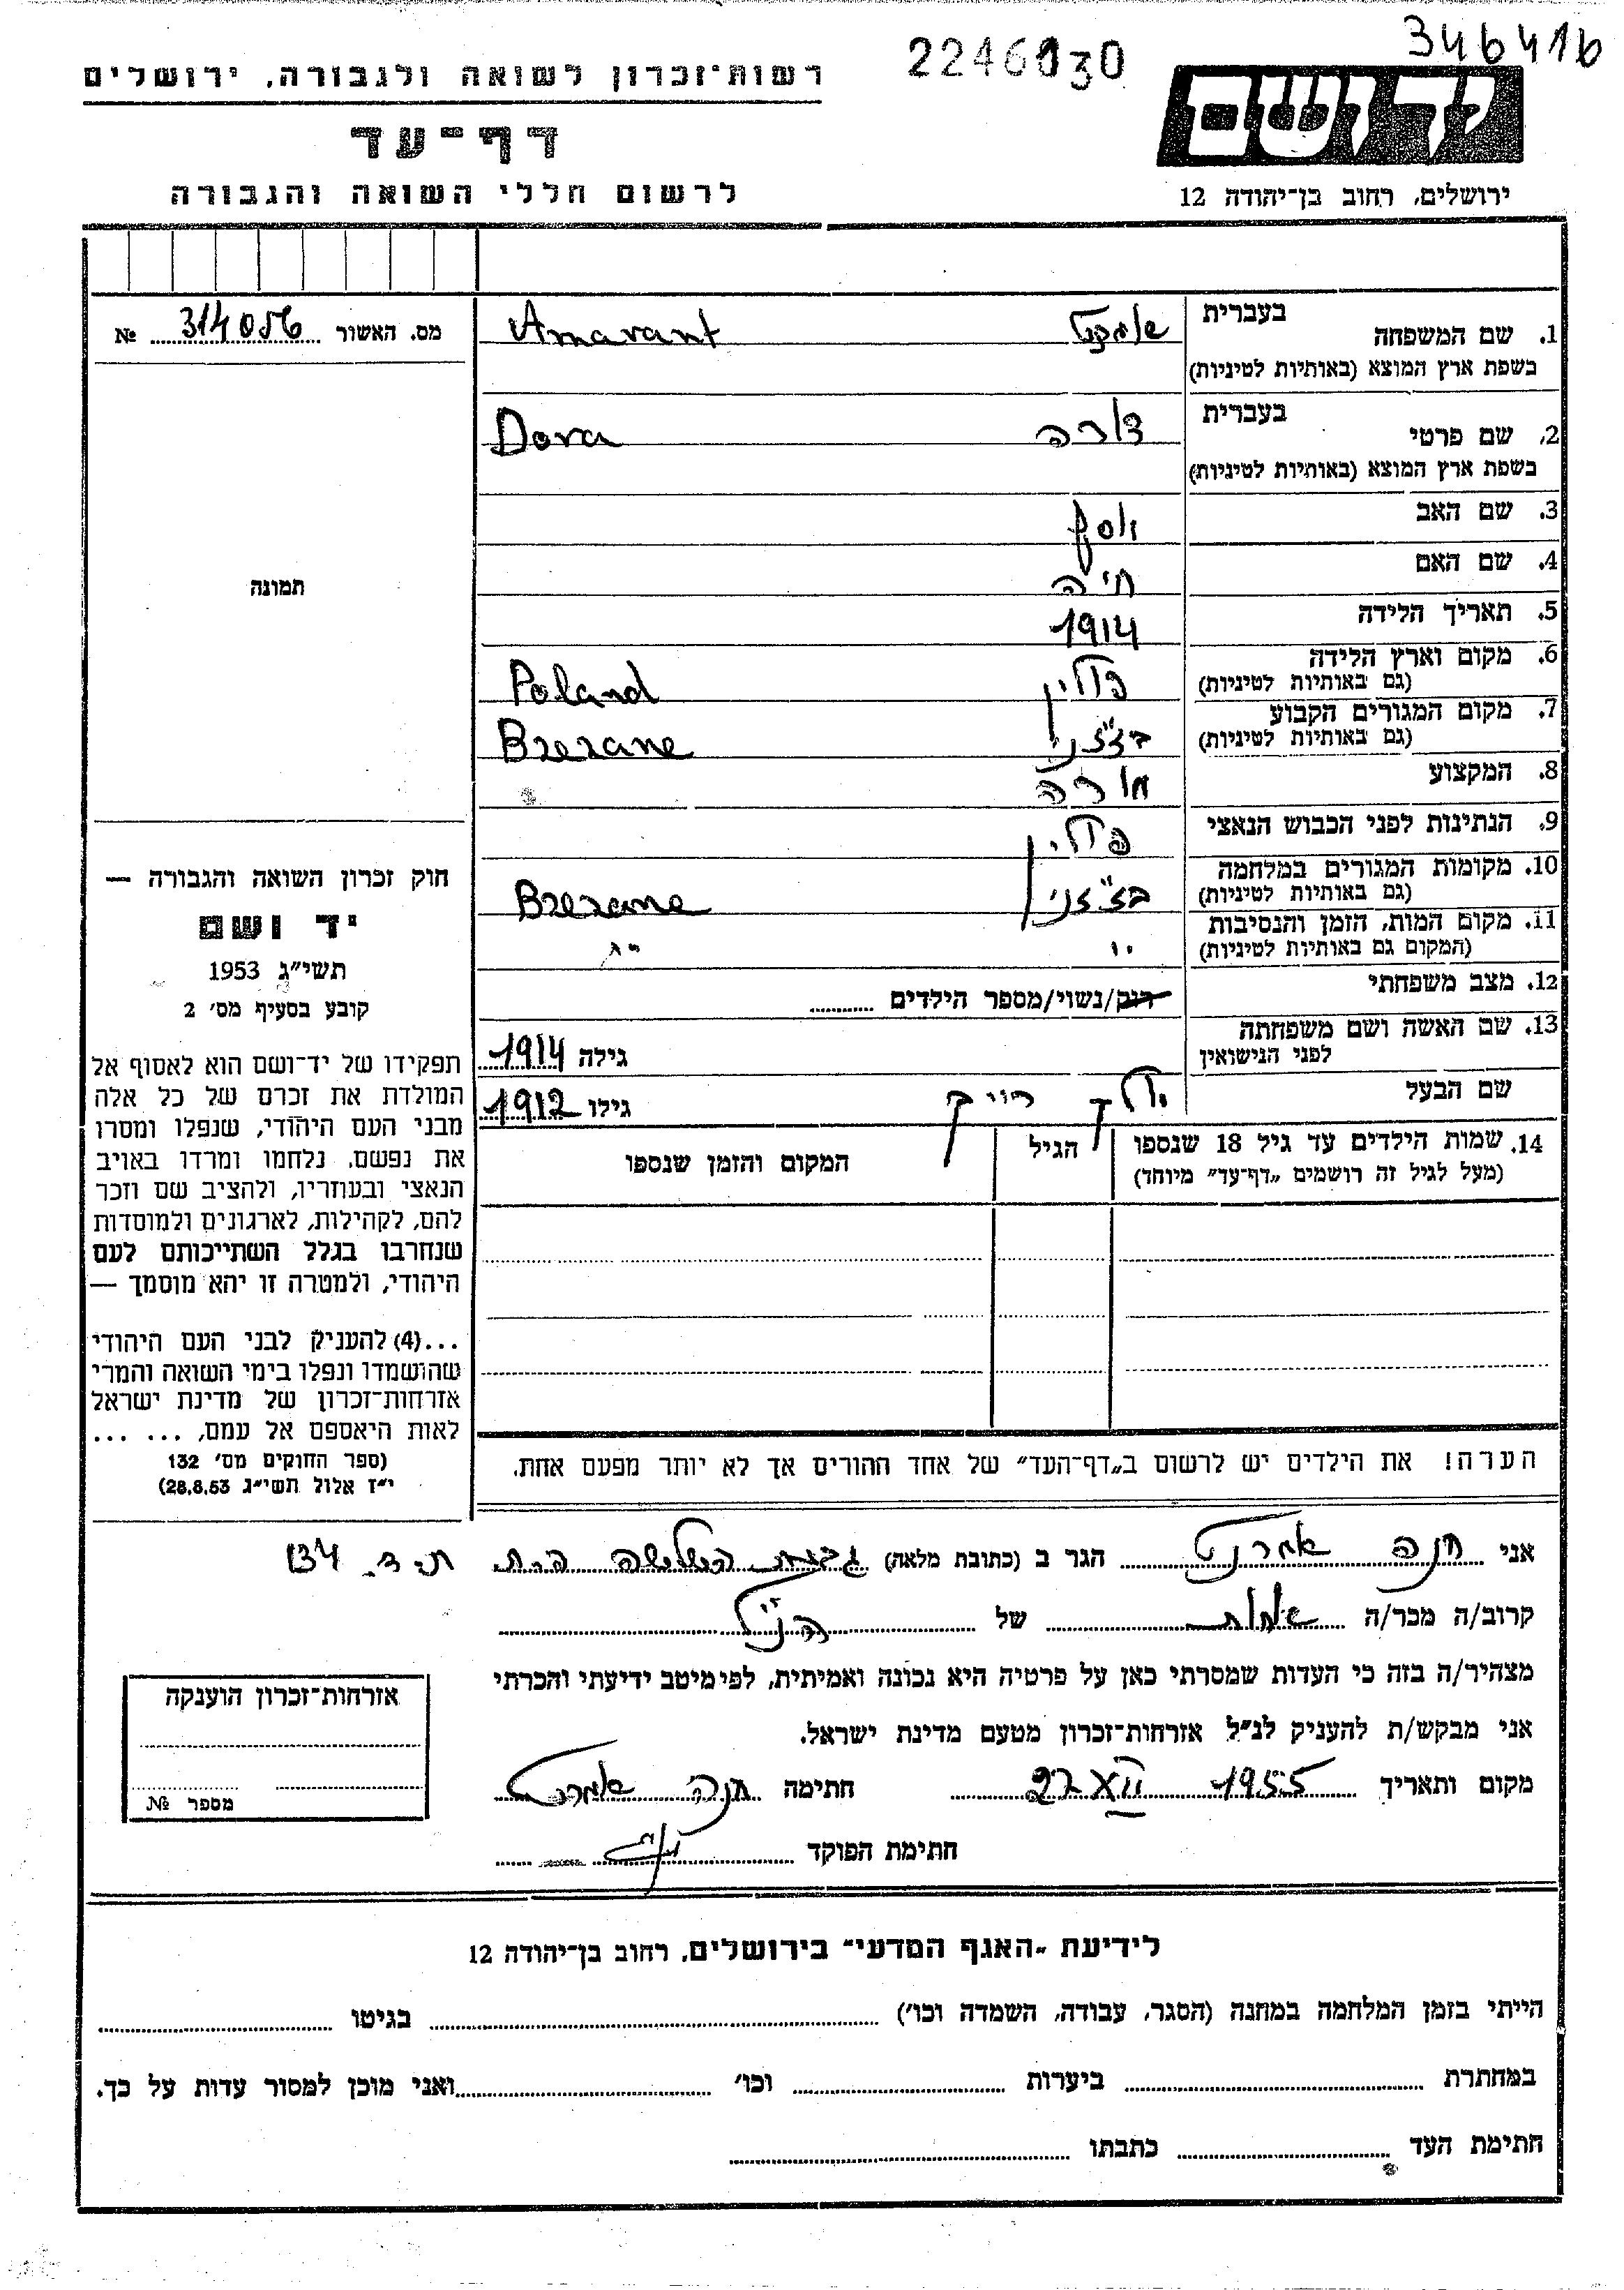 2246030
346416
רשות־זכרון לשואה ולגבורה, ירושלים
דף־עד
לרשום חללי השואה והגבורה
ידושם
ירושלים, רחוב בן־יהודה 12
מס. האשור 314056 №
1. שם המשפחה בעברית
Amarant
בשפת ארץ המוצא (באותיות לטיניות)
2. שם פרטי בעברית דורה Dora
בשפת ארץ המוצא (באותיות לטיניות)
3. שם האב יוסף
4. שם האם חיה
5. תאריך הלידה 1914
6. מקום וארץ הלידה פולין Poland
(גם באותיות לטיניות)
7. מקום המגורים הקבוע Brerane
(גם באותיות לטיניות)
8. המקצוע מורה
9. הנתינות לפני הכבוש הנאצי פולין
10. מקומות המגורים במלחמה Brerane
(גם באותיות לטיניות)
11. מקום המות, הזמן והנסיבות " "
(המקום גם באותיות לטיניות)
12. מצב משפחתי רוק/נשוי/מספר הילדים
13. שם האשה ושם משפחתה לפני הנישואין גילה 1914
שם הבעל גילו 1912
14. שמות הילדים עד גיל 18 שנספו הגיל המקום והזמן שנספו
(מעל לגיל זה רושמים „דף־עד" מיוחד)
הערה! את הילדים יש לרשום ב„דף־העד" של אחד ההורים אך לא יותר מפעם אחת.
תמונה
חוק זכרון השואה והגבורה —
יד ושם
תשי"ג 1953
קובע בסעיף מס׳ 2
תפקידו של יד־ושם הוא לאסוף אל
המולדת את זכרם של כל אלה
מבני העם היהודי, שנפלו ומסרו
את נפשם, נלחמו ומרדו באויב
הנאצי ובעוזריו, ולהציב שם וזכר
להם, לקהילות, לארגונים ולמוסדות
שנחרבו בגלל השתייכותם לעם
היהודי, ולמטרה זו יהא מוסמך —
...(4) להעניק לבני העם היהודי
שהושמדו ונפלו בימי השואה והמרי
אזרחות־זכרון של מדינת ישראל
לאות היאספם אל עמם, ... ...
(ספר החוקים מס׳ 132
י"ז אלול תשי"ג 28.8.53)
אני חנה הגר ב (כתובת מלאה) ת.ד. 134
קרוב/ה מכר/ה של הנ"ל
מצהיר/ה בזה כי העדות שמסרתי כאן על פרטיה היא נכונה ואמיתית, לפי מיטב ידיעתי והכרתי
אני מבקש/ת להעניק לנ"ל אזרחות־זכרון מטעם מדינת ישראל.
מקום ותאריך 1955 XII 27 חתימה חנה
חתימת הפוקד
אזרחות־זכרון הוענקה
מספר №
לידיעת „האגף המדעי" בירושלים, רחוב בן־יהודה 12
הייתי בזמן המלחמה במחנה (הסגר, עבודה, השמדה וכו׳) בגיטו
במחתרת ביערות וכו׳ ואני מוכן למסור עדות על כך.
חתימת העד כתבתו